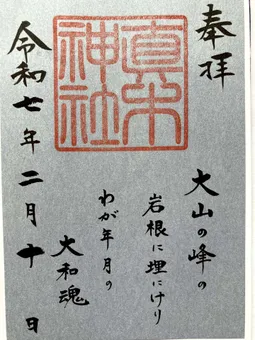 奉拝
真木神社
大山の峰の
岩根に埋にけり
わが年月の
大和魂
令和七年二月十日